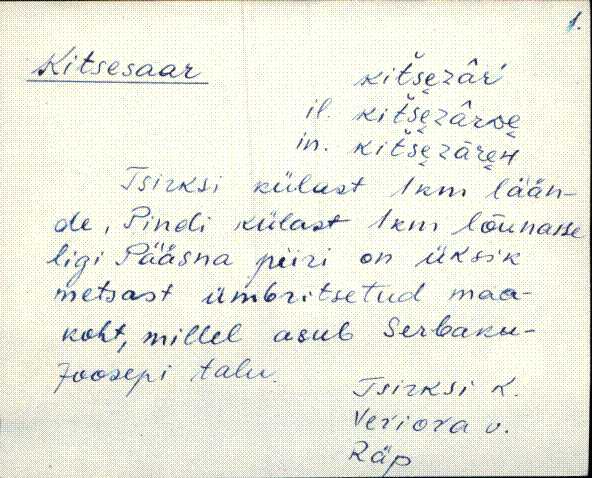 1.
Kitsesaar
kitšẹzâŕ
il. kitšẹzârᴅẹ
in. kitšẹzārẹн
Tsirksi külast 1km lään-
de, Pindi külast 1km lõunasse
ligi Pääsna piiri on üksik
metsast ümbritsetud maa-
koht, millel asub Serbaku-
Joosepi talu.
Tsirksi k.
Veriora v.
Räp